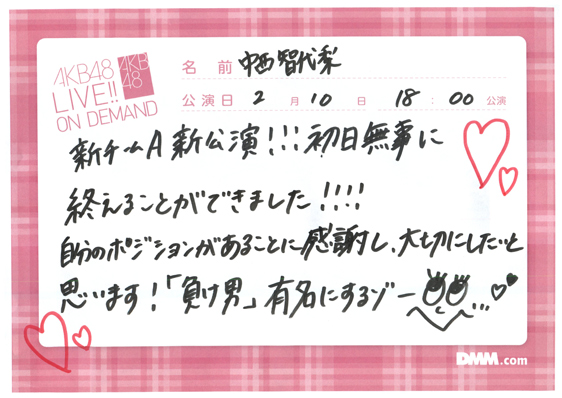 AKB48
LIVE!!
ON DEMAND
AKB
48
名 前 中西智代梨
公演日 2 月 10 日 18 : 00 公演
新チームA 新公演!!! 初日無事に
終えることができました!!!!
自分のポジションがあることに感謝し、大切にしたいと
思います!「負け男」有名にするゾー ...
DMM.com